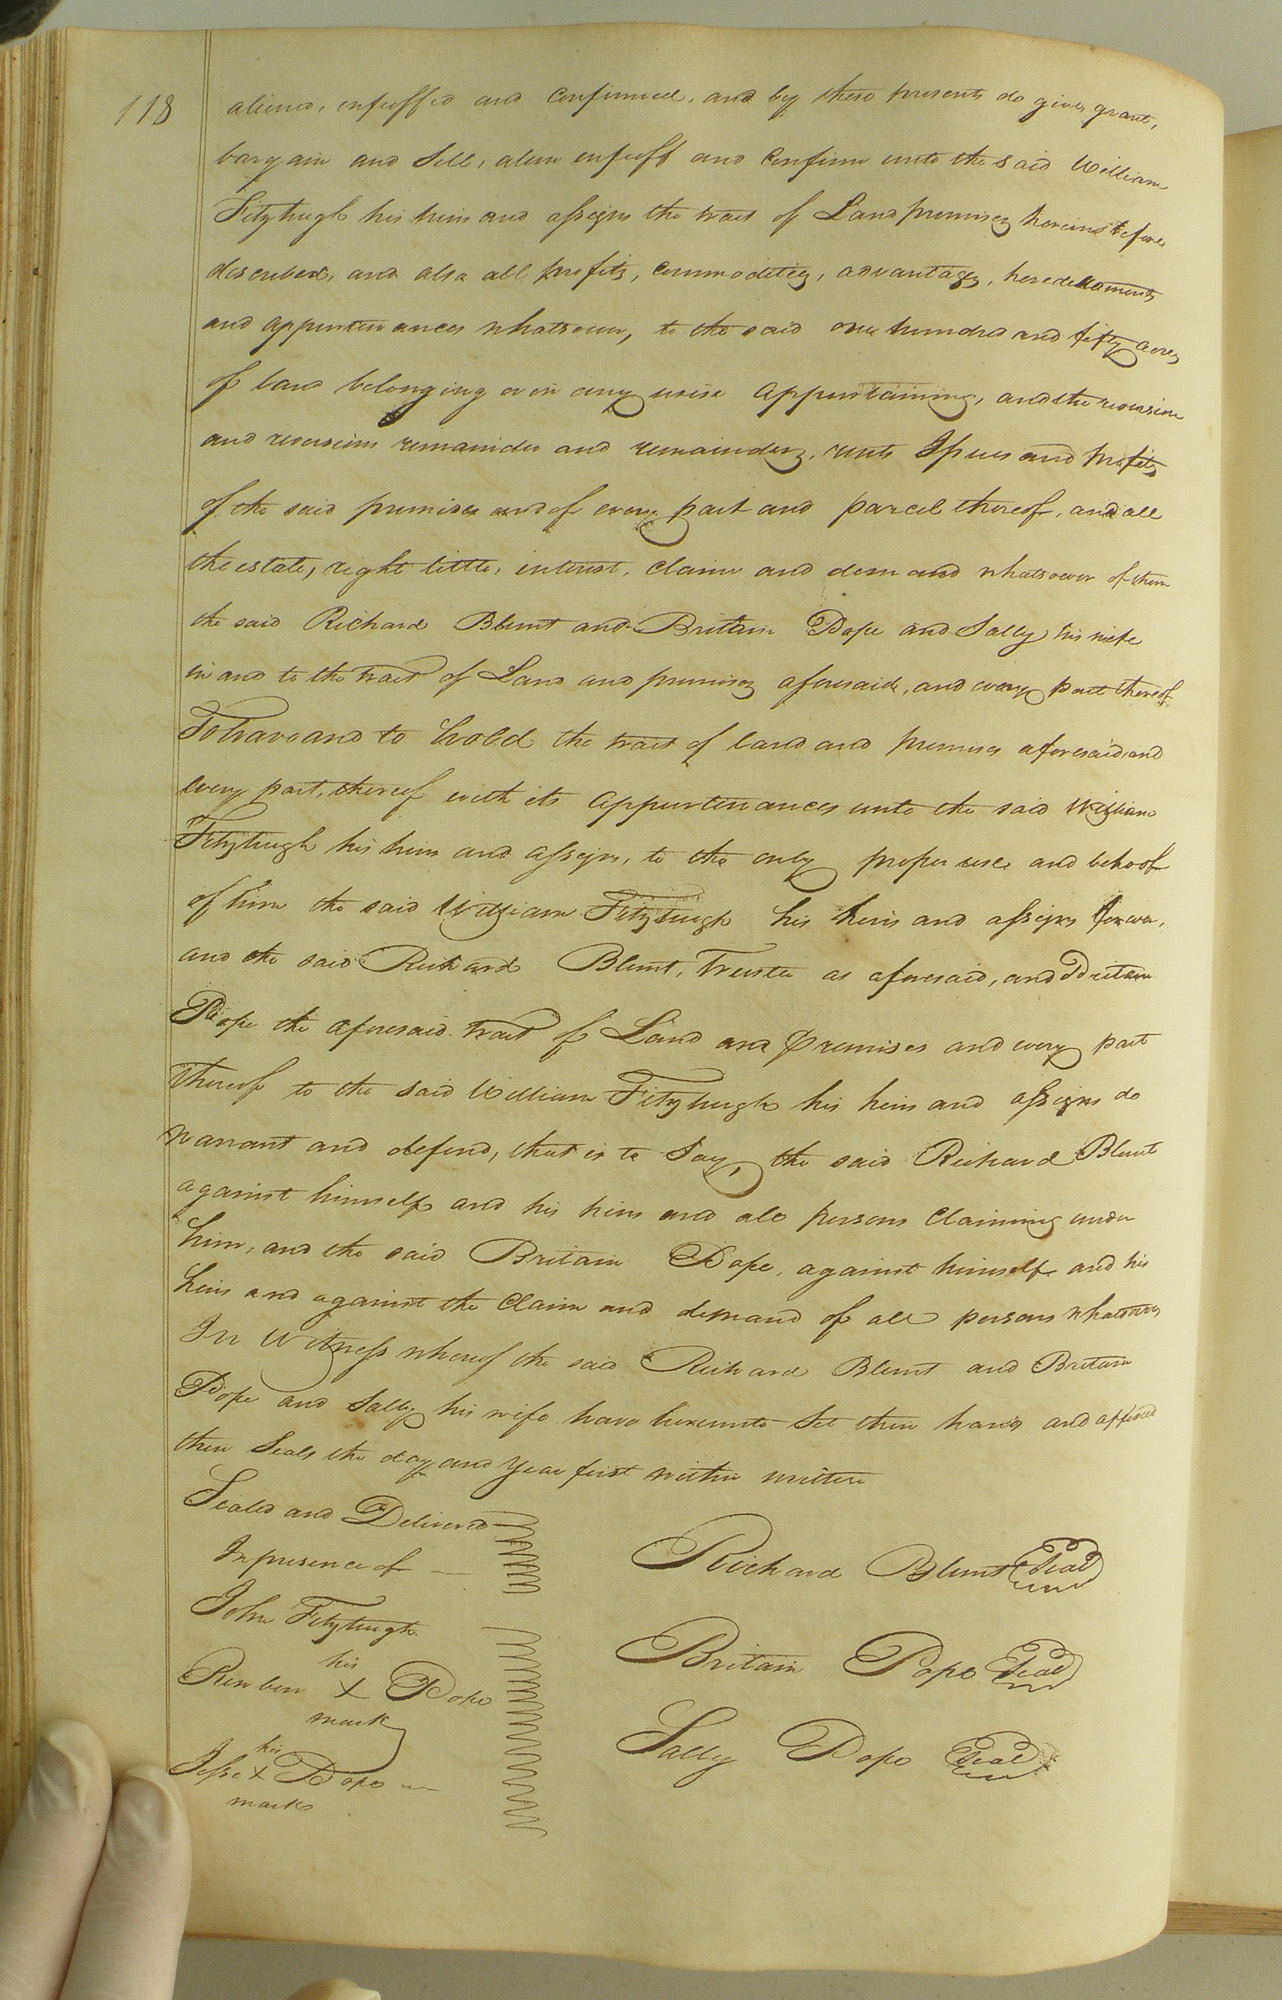 118
aliened, enfeoffed and confirmed, and by these presents do give, grant,
bargain and Sell, alien enfeoff and Confirm unto the said William
Fitzhugh his heirs and assigns the tract of Land premises hereinbefore
described, and also all profits, commodities, advantages, heredetaments
and appurtenances whatsoever, to the said one hundred and fifty acres
of land belonging or in any wise appertaining, and the reversion
and reversions remainder and remainders, rents Issues and profits
of the said premises and of every part and parcel thereof, and all
the estate, right title, interest, claim and demand whatsoever of them
the said Richard Blunt and Britain Pope and Sally his wife
in and to the tract of Land and premises aforesaid, and every part thereof.
To have and to hold the tract of land and premises aforesaid, and
every part, thereof with its appurtenances unto the said William
Fitzhugh his heirs and assigns, to the only proper use and behoof
of him the said William Fitzhugh his heirs and assigns forever,
and the said Richard Blunt, Trustee as aforesaid, and Britain
Pope the aforesaid tract of Land and premises and every part
thereof to the said William Fitzhugh his heirs and assigns do
warrant and defend, that is to Say, the said Richard Blunt
against himself and his heirs and all persons Claiming under
him, and the said Britain Pope, against himself and his
heirs and against the Claim and demand of all persons whatsoever
In Witness whereof the said Richard Blunt and Britain
Pope and Sally his wife have hereunto Set their hands and affixed
their Seals the day and Year first within written
Sealed and Delivered
In presence of —
John Fitzhugh
his
Reuben X Pope
mark
his
Jesse X Pope
mark
Richard Blunt Seal
Britain Pope Seal
Sally Pope Seal